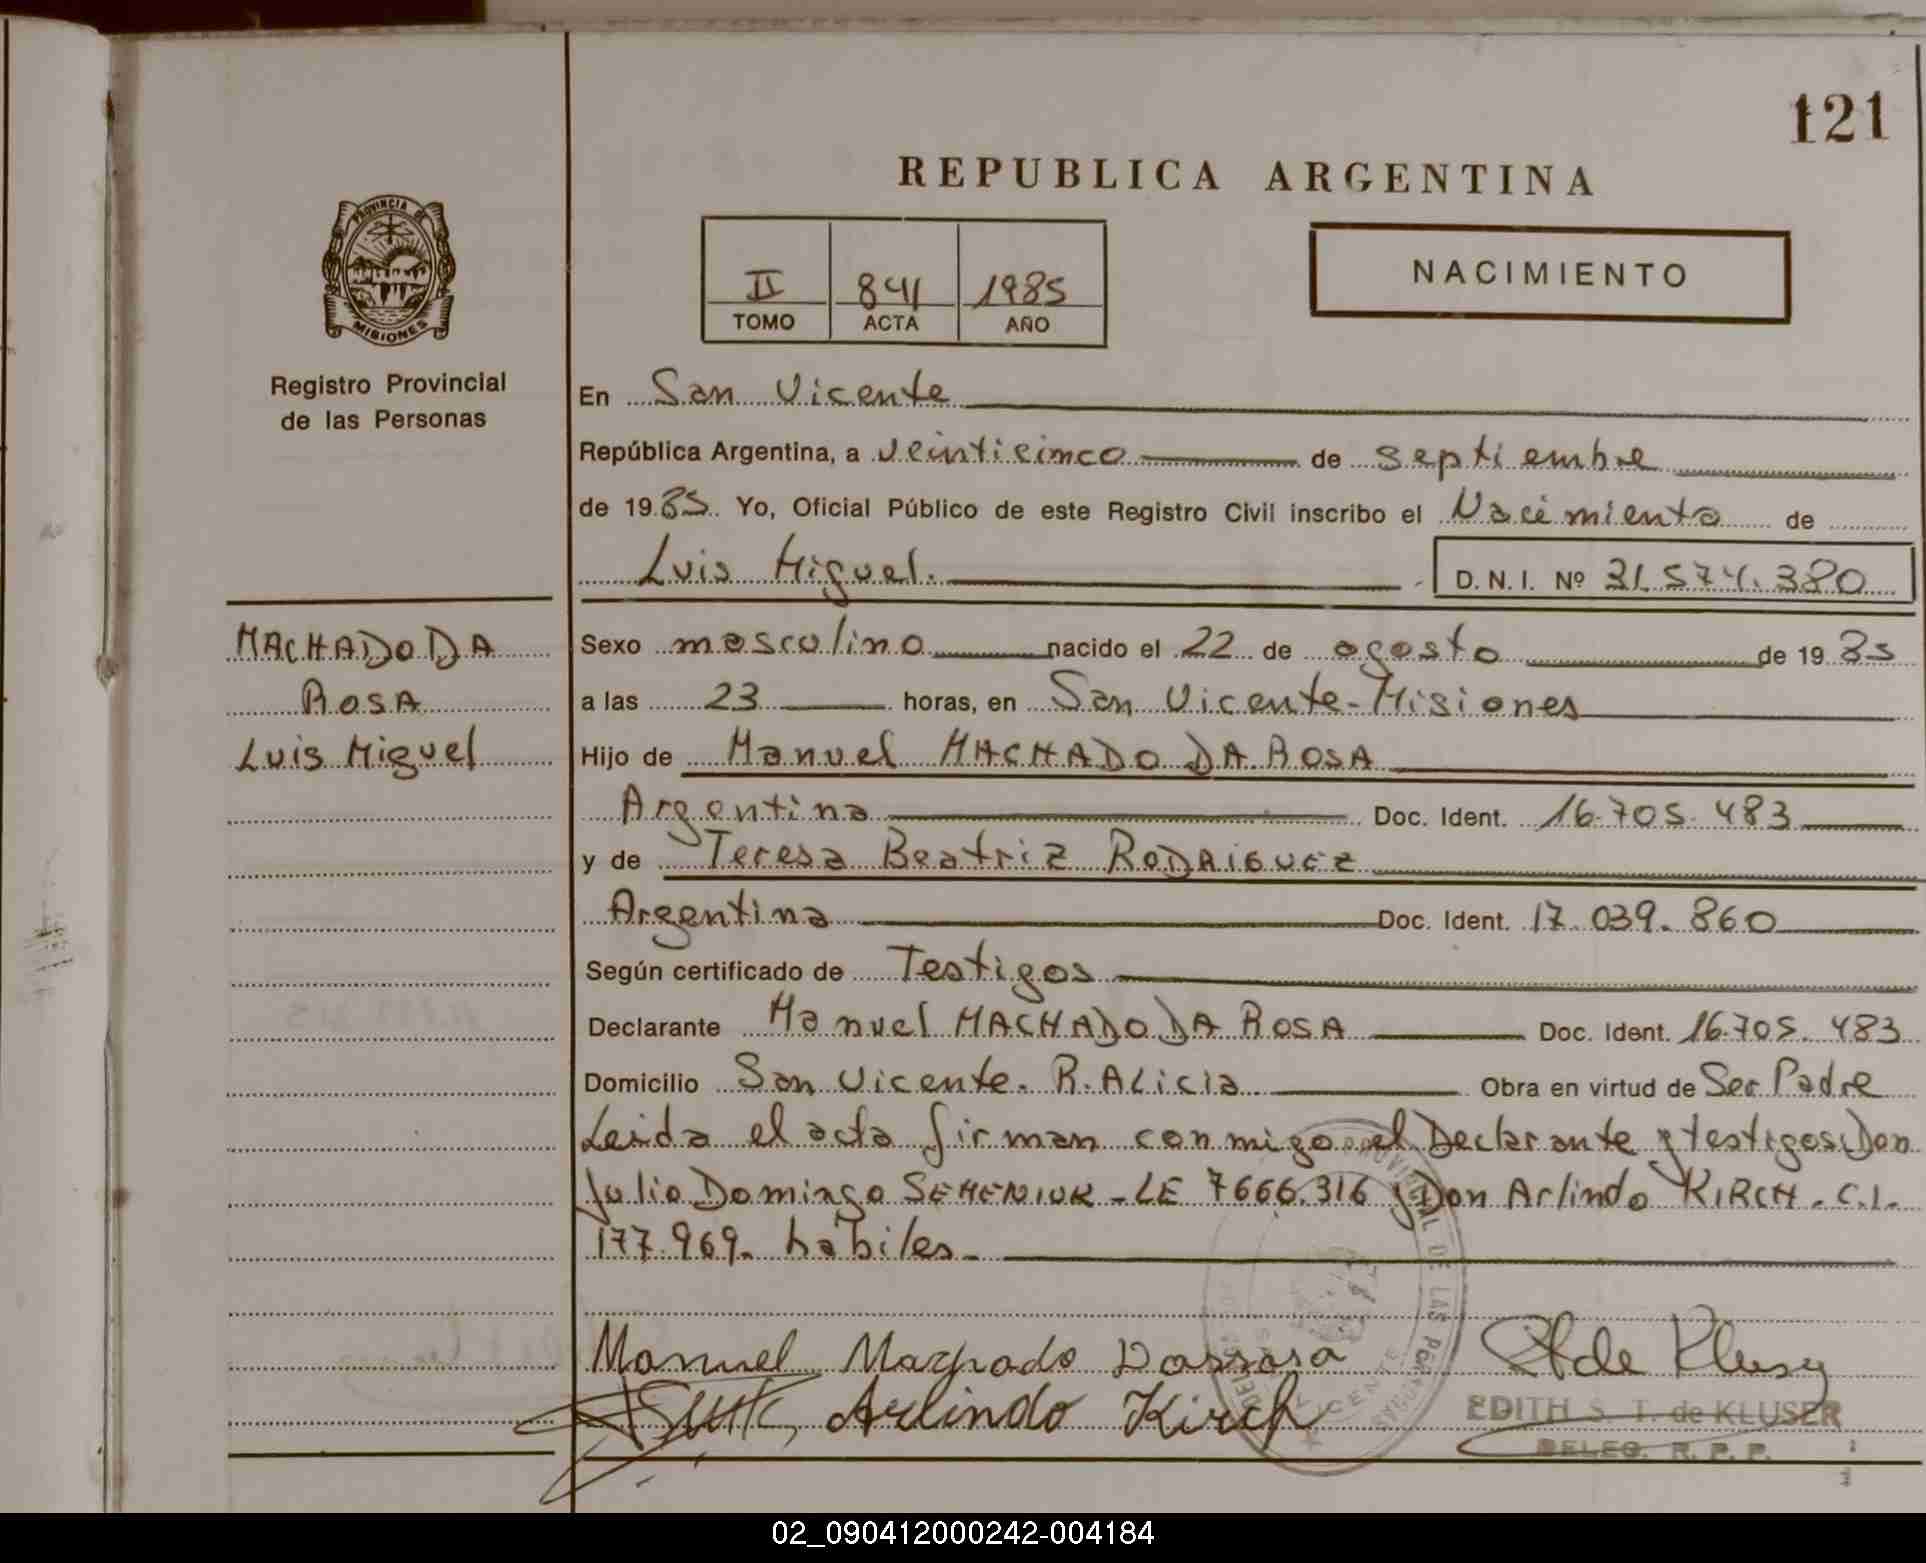 121
REPUBLICA ARGENTINA
PROVINCIA DE
MISIONES
II 841 1985
TOMO ACTA AÑO
NACIMIENTO
Registro Provincial
de las Personas
En San Vicente
República Argentina, a veinticinco de septiembre
de 1985. Yo, Oficial Público de este Registro Civil inscribo el Nacimiento de
Luis Miguel. D. N. I. Nº 31.574.380
MACHADO DA
ROSA
Luis Miguel
Sexo masculino nacido el 22 de agosto de 1985
a las 23 horas, en San Vicente-Misiones
Hijo de Manuel MACHADO DA ROSA
Argentina Doc. Ident. 16.705.483
y de Teresa Beatriz RODRIGUEZ
Argentina Doc. Ident. 17.039.860
Según certificado de Testigos
Declarante Manuel MACHADO DA ROSA Doc. Ident. 16.705.483
Domicilio San Vicente. R. Alicia Obra en virtud de Ser Padre
Leida el acta firman conmigo el Declarante y testigos Don
Julio Domingo SEMENIUK - LE 7666.316 y Don Arlindo KIRCH. C.I.
177.969. habiles
Manuel Machado Darrosa
Arlindo Kirch
EDITH S. T. de KLUSER
DELEG. R. P. P.
02_090412000242-004184